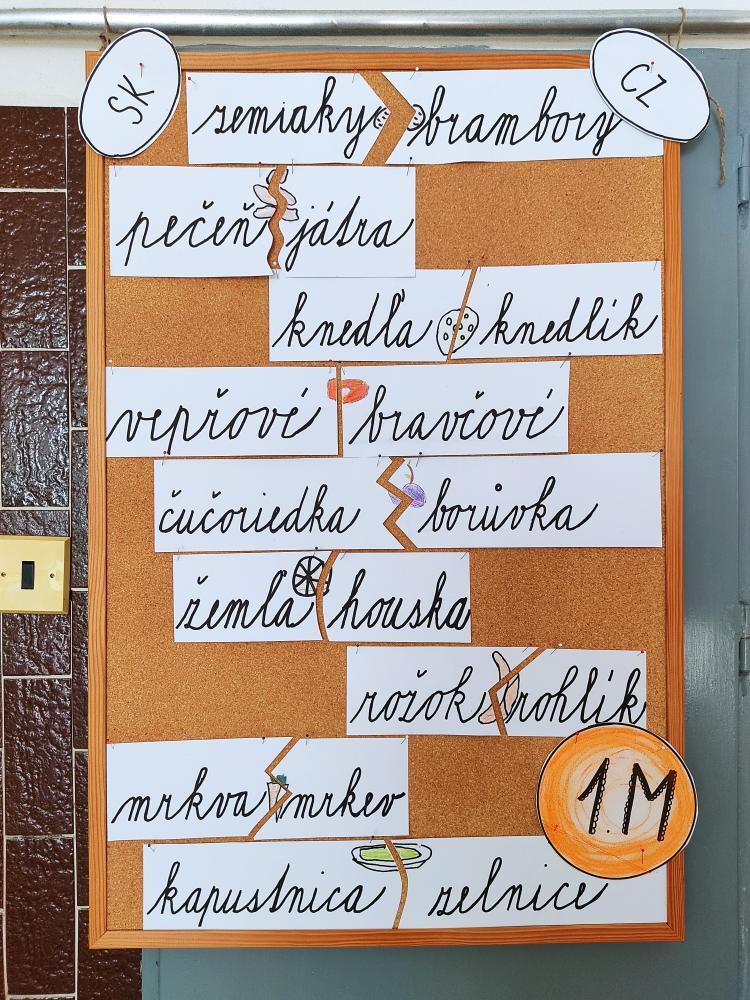 SK CZ
zemiaky brambory
pečeň játra
knedľa knedlík
vepřové bravčové
čučoriedka borůvka
žemľa houska
rožok rohlík
mrkva mrkev
1.M
kapustnica zelnice